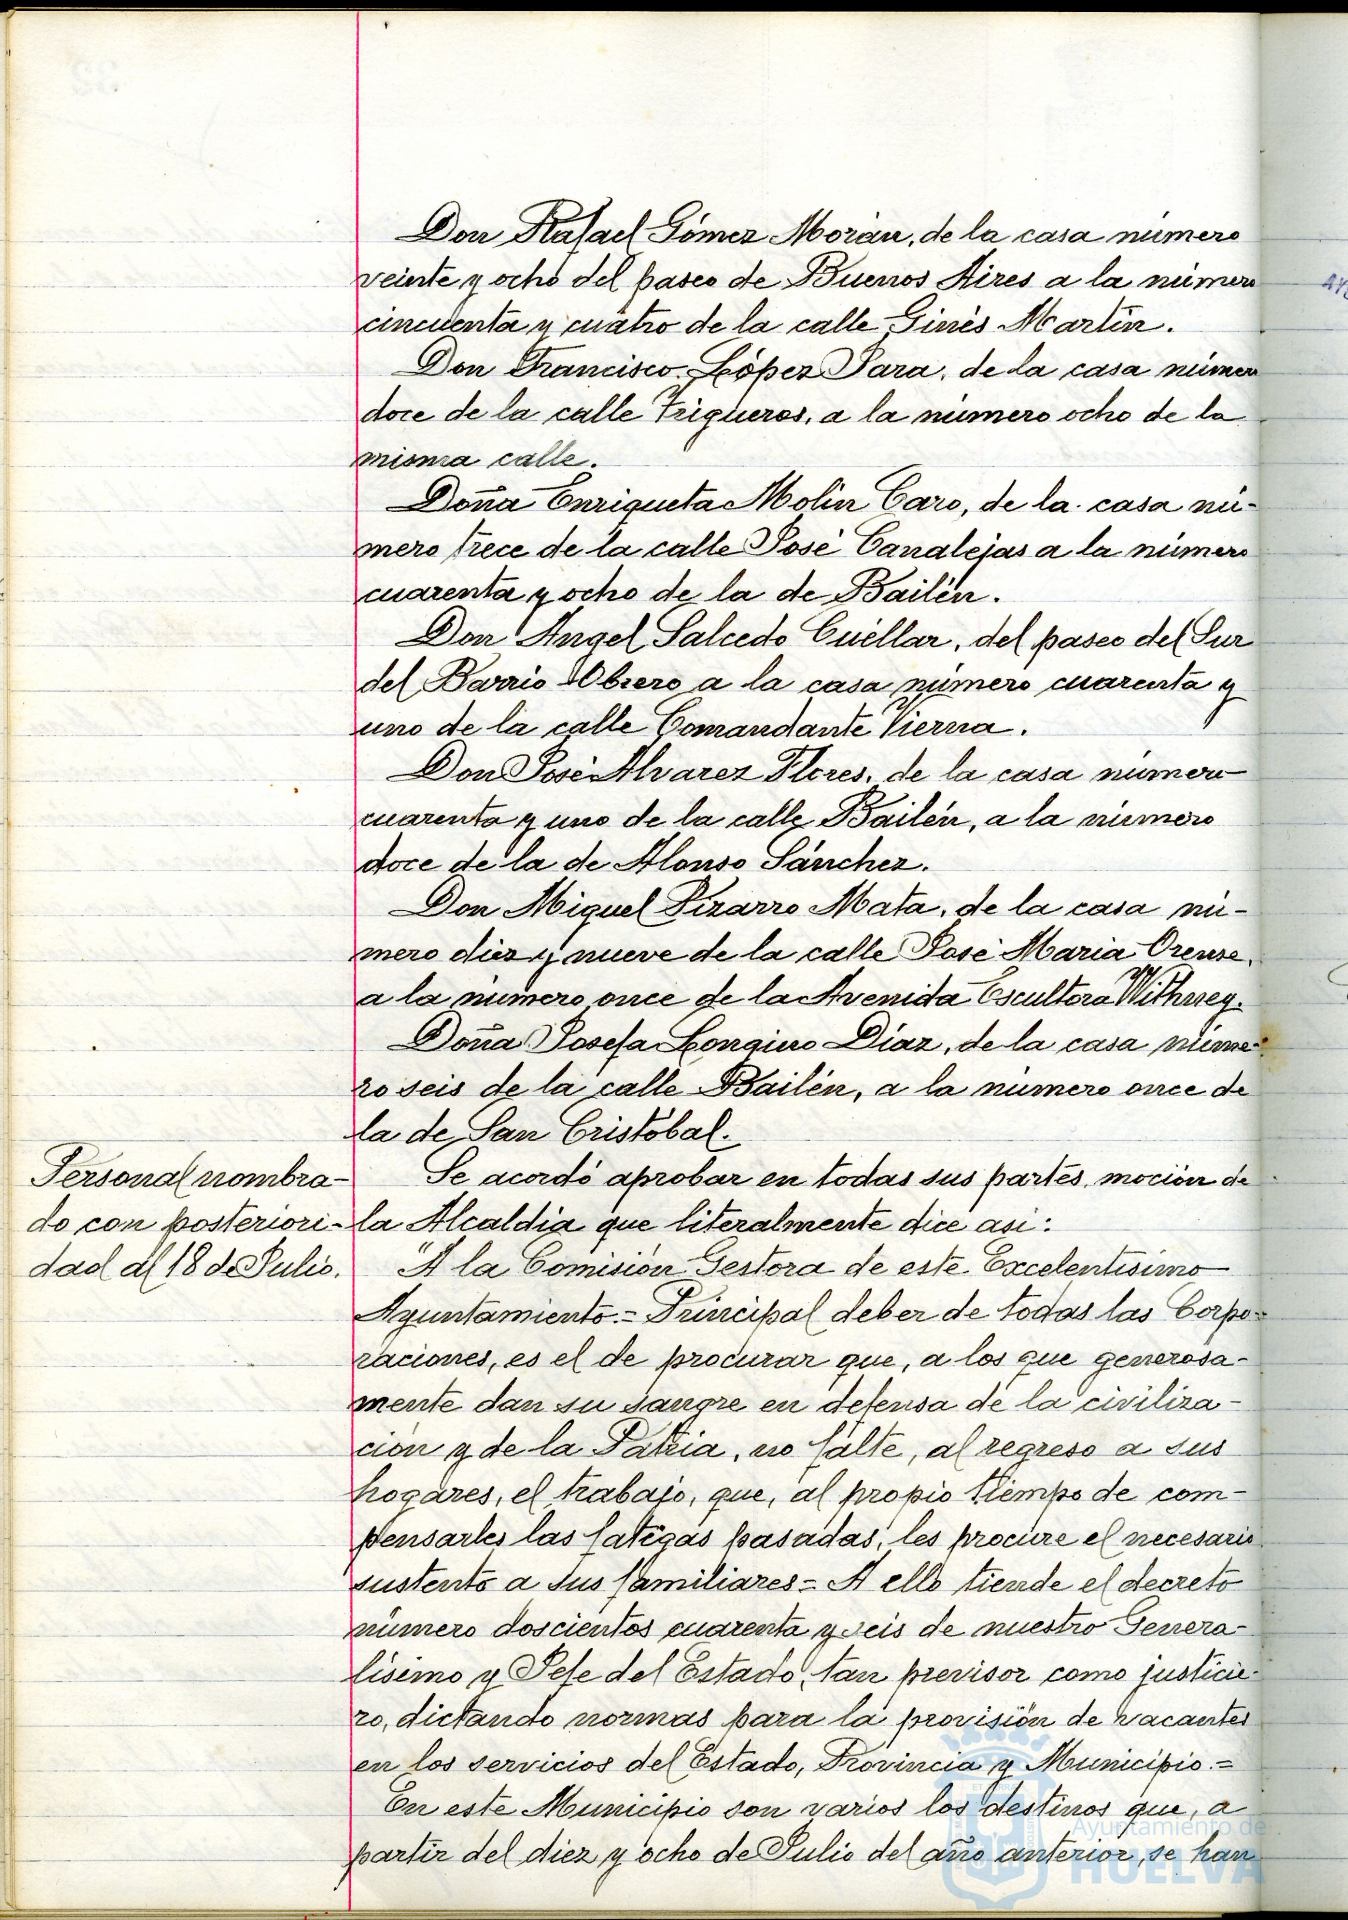 Don Rafael Gómez Morán, de la casa número
veinte y ocho del paseo de Buenos Aires a la número
cincuenta y cuatro de la calle Ginés Martín.
Don Francisco López Jara, de la casa número
doce de la calle Trigueros, a la número ocho de la
misma calle.
Doña Enriqueta Molín Caro, de la casa nú-
mero trece de la calle José Canalejas a la número
cuarenta y ocho de la de Bailén.
Don Angel Salcedo Cuéllar, del paseo del Sur
del Barrio Obrero a la casa número cuarenta y
uno de la calle Comandante Vierna.
Don José Alvarez Flores, de la casa número
cuarenta y uno de la calle Bailén, a la número
doce de la de Alonso Sánchez.
Don Miguel Pizarro Mata, de la casa nú-
mero diez y nueve de la calle José Maria Orense,
a la número once de la Avenida Escultora Withney.
Doña Josefa Longino Díaz, de la casa núme-
ro seis de la calle Bailén, a la número once de
la de San Cristóbal.
Personal nombra-
do con posteriori-
dad al 18 de Julio.
Se acordó aprobar en todas sus partes, moción de
la Alcaldía que literalmente dice así:
"A la Comisión Gestora de este Excelentísimo
Ayuntamiento.= Principal deber de todas las Corpo-
raciones, es el de procurar que, a los que generosa-
mente dan su sangre en defensa de la civiliza-
ción y de la Patria, no falte, al regreso a sus
hogares, el trabajo, que, al propio tiempo de com-
pensarles las fatigas pasadas, les procure el necesario
sustento a sus familiares= A ello tiende el decreto
número doscientos cuarenta y seis de nuestro Genera-
lísimo y Jefe del Estado, tan previsor como justicie-
ro, dictando normas para la provisión de vacantes
en los servicios del Estado, Provincia y Municipio.=
En este Municipio son varios los destinos que, a
partir del diez y ocho de Julio del año anterior, se han
Ayuntamiento de
HUELVA